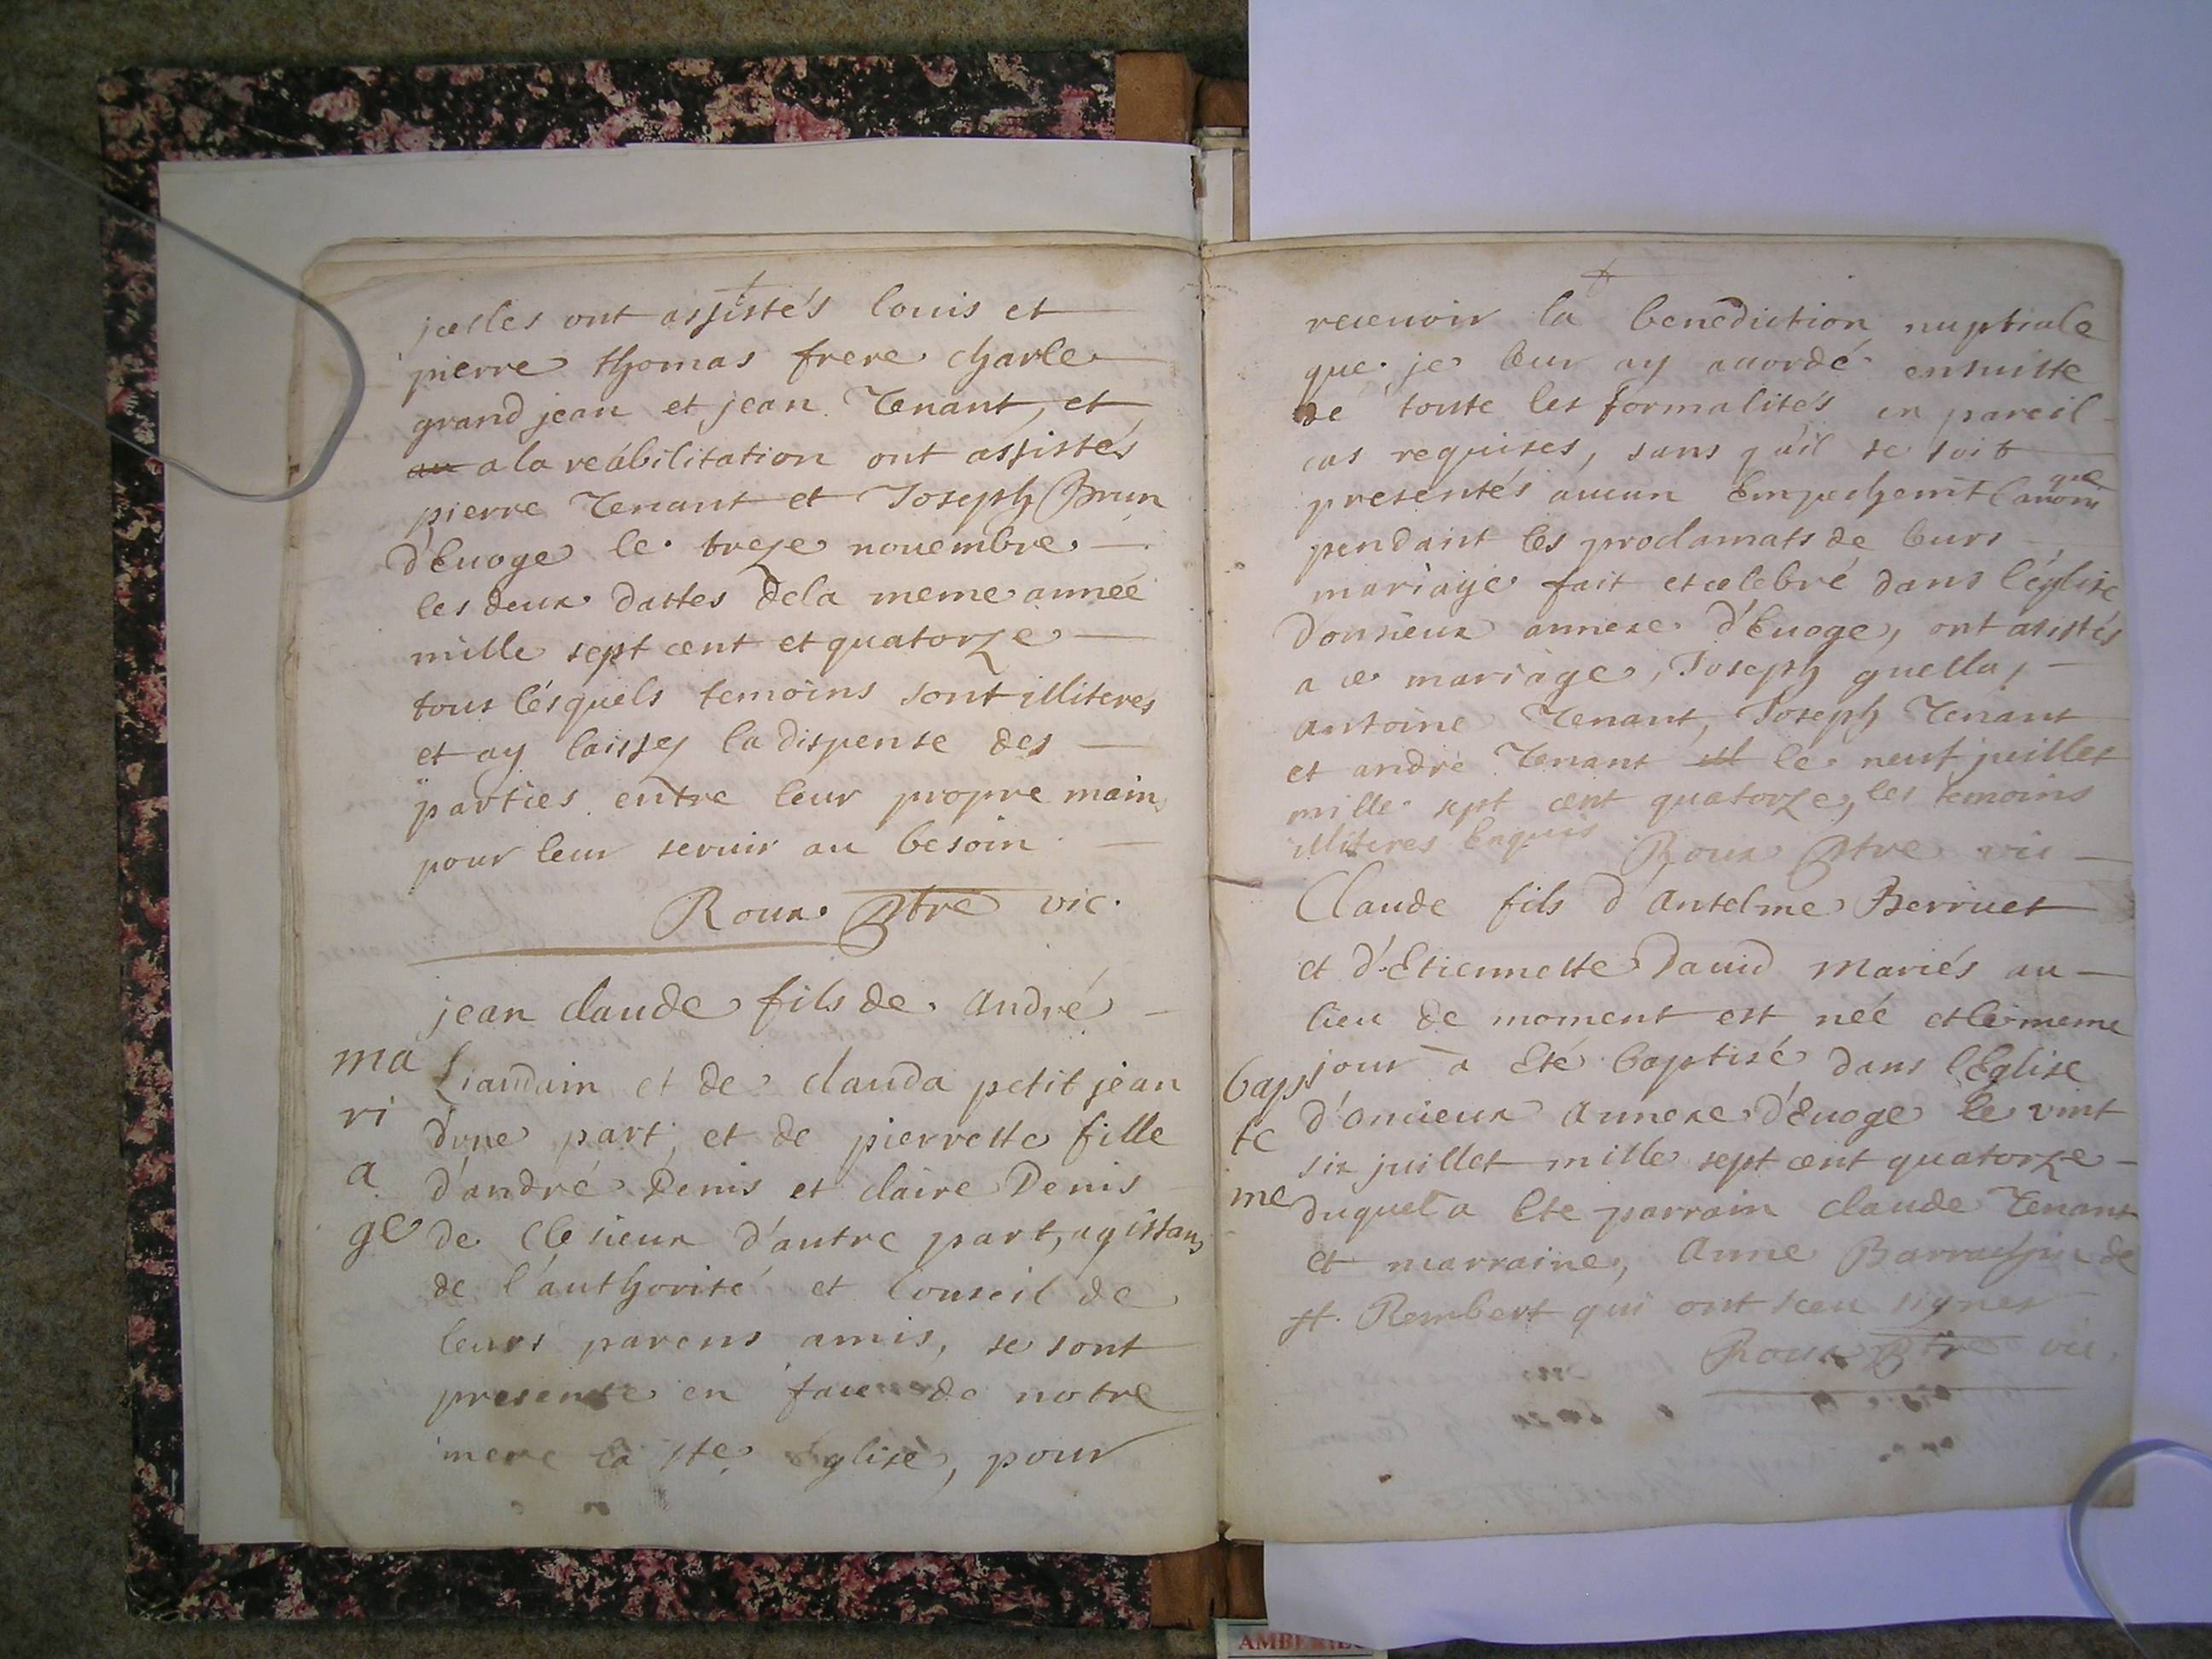 jcelles ont assistés louis et
pierre thomas frere charle
grand jean et jean Tenant, et
au a la reábilitation ont assistés
pierre Tenant et Joseph Brun
d'Euoge le treze nouembre
les deux dattes dela meme année
mille sept cent et quatorze
tous lésquels temoins sont illiteres
et ay laissez la dispense des
parties entre leur propre main,
pour leur seruir au besoin
Roux Ptre vic.
jean claude fils de André
ma
Liaudain et de clauda petit jean
ri
d'une part, et de pierrette fille
a
d'andré Denis et claire Denis
ge
de Clesieux d'autre part, agissans
de l'authorité et Conseil de
leurs parens amis, se sont
presente en face de notre
mere la Ste Eglise, pour
receuoir la benediction nuptiale
que je leur ay acordé ensuitte
de toute les formalités en pareil
cas requises, sans qu'il se soit
presentés aucun Empechemt Canoni
que
pendant les proclamats de leurs
mariage fait et celebré dans léglise
d'onsieux annexe d'Euoge, ont assistés
a ce mariage, Joseph quella,
antoine Tenant, Joseph Tenant
et andré Tenant ill le neuf juillet
mille sept cent quatorze, les temoins
illiteres Enquis Roux Ptre vic
Claude fils d'Antelme Berruet
et d'Etiennette Dauid Mariés au
lieu de moment est néé et le meme
jour a Eté baptisé dans lEglise
bap
d'oncieux Annexe d'Euoge le vint
te
six juillet mille sept cent quatorze
me
duquel a Ete parrain claude Tenant
et marraine, Anne de
St. Rembert qui ont sceu signer
Roux Ptre vic.
AMBERIEU